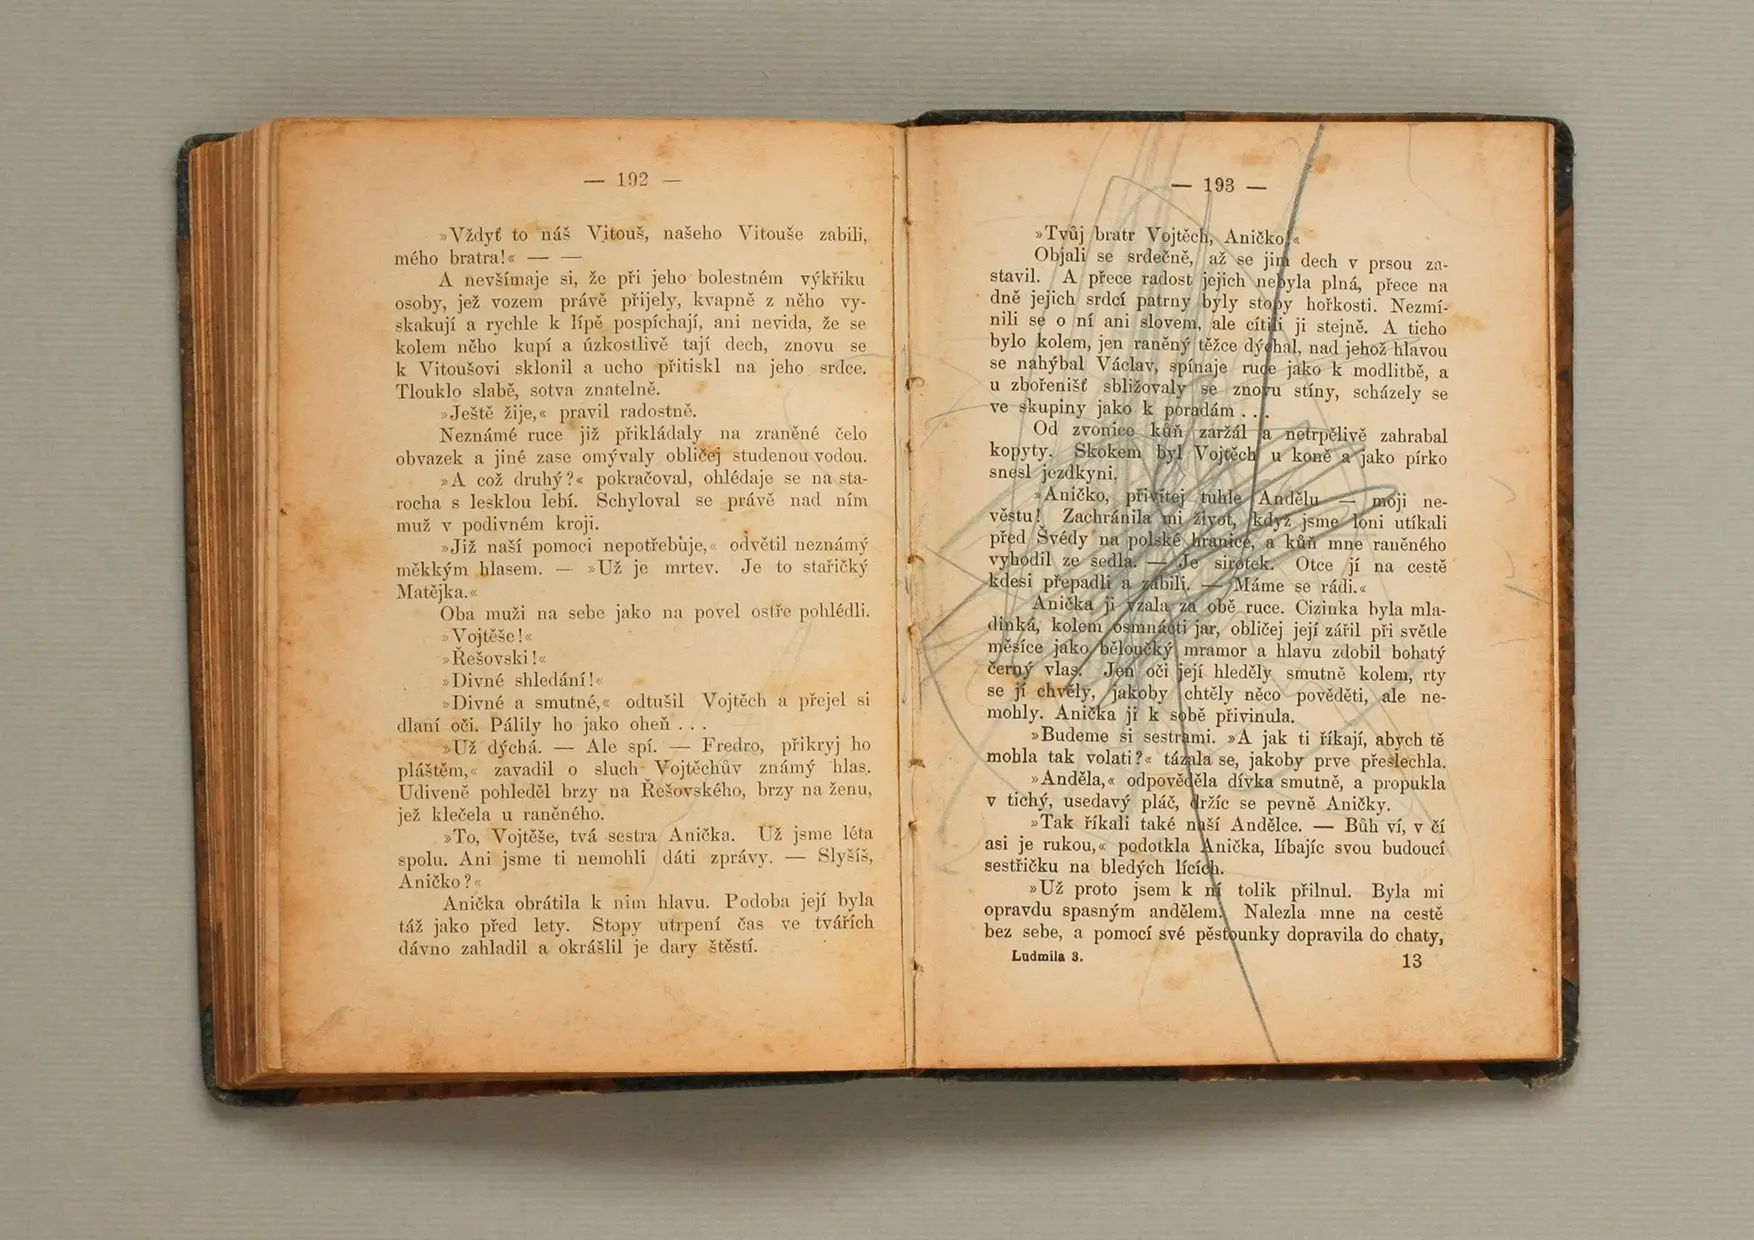 — 192 —
»Vždyť to náš Vitouš, našeho Vitouše zabili,
mého bratra!« — —
A nevšímaje si, že při jeho bolestném výkřiku
osoby, jež vozem právě přijely, kvapně z něho vy-
skakují a rychle k lípě pospíchají, ani nevida, že se
kolem něho kupí a úzkostlivě tají dech, znovu se
k Vitoušovi sklonil a ucho přitiskl na jeho srdce.
Tlouklo slabě, sotva znatelně.
»Ještě žije,« pravil radostně.
Neznámé ruce již přikládaly na zraněné čelo
obvazek a jiné zase omývaly obličej studenou vodou.
»A což druhý?« pokračoval, ohlédaje se na sta-
rocha s lesklou lebí. Schyloval se právě nad ním
muž v podivném kroji.
»Již naší pomoci nepotřebuje,« odvětil neznámý
měkkým hlasem. — »Už je mrtev. Je to stařičký
Matějka.«
Oba muži na sebe jako na povel ostře pohlédli.
»Vojtěše!«
»Řešovski!«
»Divné shledání!«
»Divné a smutné,« odtušil Vojtěch a přejel si
dlaní oči. Pálily ho jako oheň . . .
»Už dýchá. — Ale spí. — Fredro, přikryj ho
pláštěm,« zavadil o sluch Vojtěchův známý hlas.
Udiveně pohleděl brzy na Řešovského, brzy na ženu,
jež klečela u raněného.
»To, Vojtěše, tvá sestra Anička. Už jsme léta
spolu. Ani jsme ti nemohli dáti zprávy. — Slyšíš,
Aničko?«
Anička obrátila k nim hlavu. Podoba její byla
táž jako před lety. Stopy utrpení čas ve tvářích
dávno zahladil a okrášlil je dary štěstí.
— 193 —
»Tvůj bratr Vojtěch, Aničko!«
Objali se srdečně, až se jim dech v prsou za-
stavil. A přece radost jejich nebyla plná, přece na
dně jejich srdcí patrny byly stopy hořkosti. Nezmí-
nili se o ní ani slovem, ale cítili ji stejně. A ticho
bylo kolem, jen raněný těžce dýchal, nad jehož hlavou
se nahýbal Václav, spínaje ruce jako k modlitbě, a
u zbořenišť sbližovaly se znovu stíny, scházely se
ve skupiny jako k poradám . . .
Od zvonice kůň zaržál a netrpělivě zahrabal
kopyty. Skokem byl Vojtěch u koně a jako pírko
snesl jezdkyni.
»Aničko, přivítej tuhle Andělu — moji ne-
věstu! Zachránila mi život, když jsme loni utíkali
před Švédy na polské hranice, a kůň mne raněného
vyhodil ze sedla. — Je sirotek. Otce jí na cestě
kdesi přepadli a zabili. — Máme se rádi.«
Anička ji vzala za obě ruce. Cizinka byla mla-
dinká, kolem osmnácti jar, obličej její zářil při světle
měsíce jako běloučký mramor a hlavu zdobil bohatý
černý vlas. Jen oči její hleděly smutně kolem, rty
se jí chvěly, jakoby chtěly něco pověděti, ale ne-
mohly. Anička ji k sobě přivinula.
»Budeme si sestrami. »A jak ti říkají, abych tě
mohla tak volati?« tázala se, jakoby prve přeslechla.
»Anděla,« odpověděla dívka smutně, a propukla
v tichý, usedavý pláč, držíc se pevně Aničky.
»Tak říkali také naší Andělce. — Bůh ví, v čí
asi je rukou,« podotkla Anička, líbajíc svou budoucí
sestřičku na bledých lících.
»Už proto jsem k ní tolik přilnul. Byla mi
opravdu spasným andělem. Nalezla mne na cestě
bez sebe, a pomocí své pěstounky dopravila do chaty,
Ludmila 3.
13